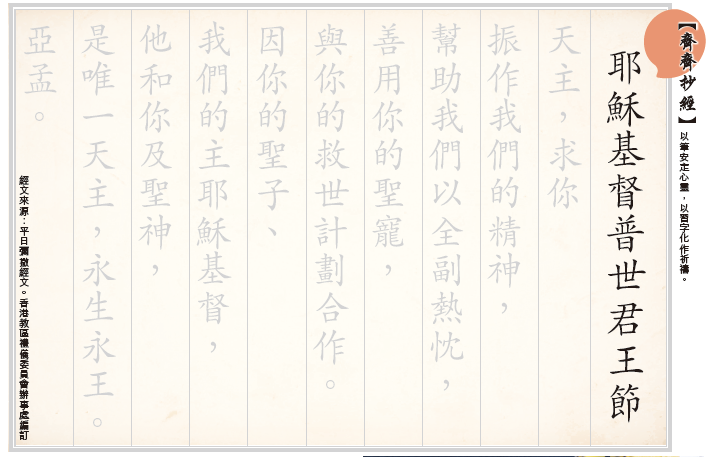 【齊齊抄經】以筆安定心靈，以習字化作祈禱。
耶穌基督普世君王節
天主，求你
振作我們的精神，
幫助我們以全副熱忱，
善用你的聖寵，
與你的救世計劃合作。
因你的聖子、
我們的主耶穌基督，
他和你及聖神，
是唯一天主，永生永王。
亞孟。
經文來源：平日彌撒經文。香港教區禮儀委員會辦事處編訂